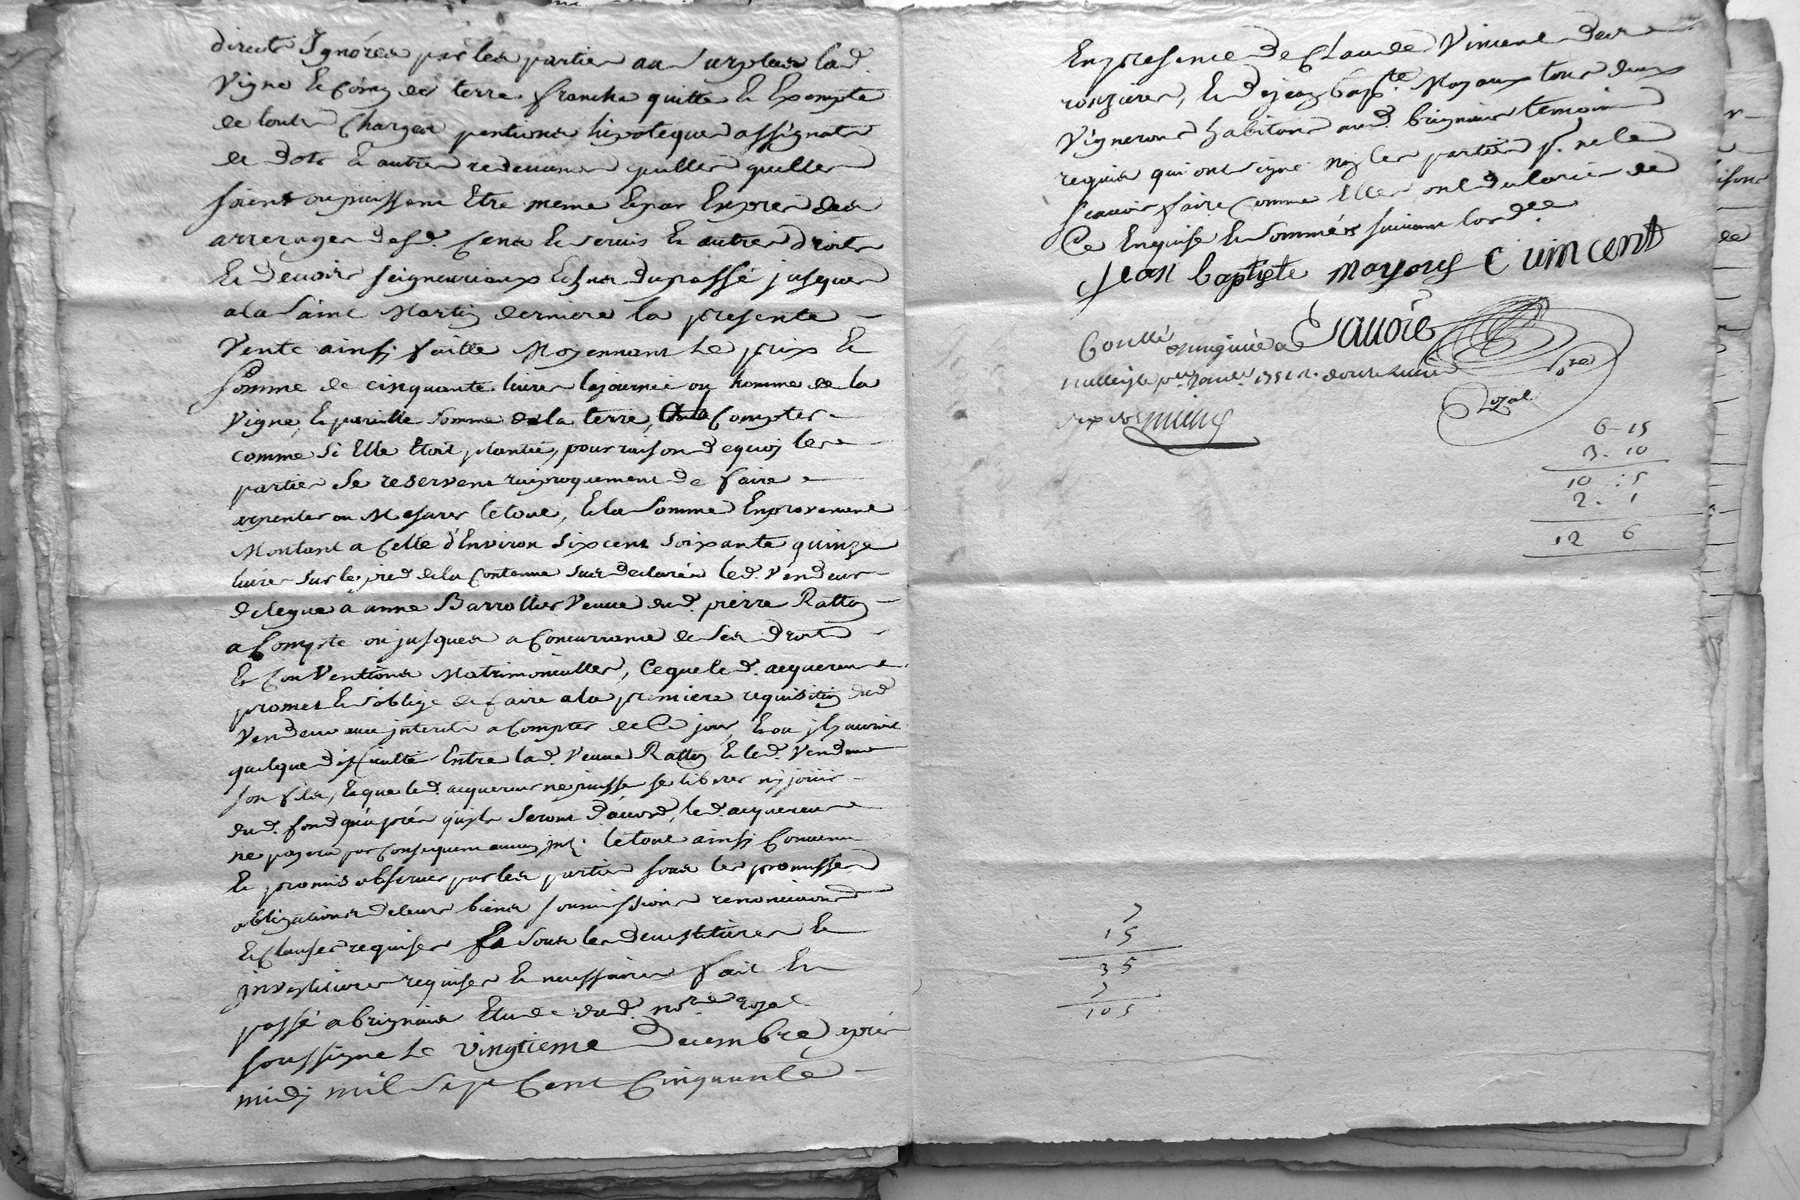 directe Ignorée par les parties au surplus lad.
Vigne et Coing de terre franche quitte et Exempte
de toutes Charges pentions hipoteques assignats
de dots et autres redevances quelles quelles
soient ou puissent Etre meme Expres des
arrerages desd. Cens et servis et autres droits
et devoirs seigneuriaux Echus du passé jusques
a la Saint Martin derniere la presente
Vente ainsi faitte Moyennant Le prix et
Somme de cinquante livres la journée ou homme de la
Vigne, et pareille somme de la terre, Compter
comme si Elle Etoit plantée, pour raison de quoi les
parties se reservent reciproquement de faire
arpenter ou Mesurer letout, et la somme En provenant
Montant a Celle d'Environ six cent soixante quinze
livres sur le pied de la Contenue sus declarée led. Vendeur
delegue a anne Barrollier Veuve dud. pierre Ratton
a Compte ou jusques a Concurrance de ses droits
et Conventions Matrimonialles, Ce que led. acquereur
promet et s'oblige de faire a la premiere requisition dud.
Vendeur avec interets a Compter de Ce jour, et ou il y auroit
quelque difficulté Entre lad. Veuve Ratton et led. Vendeur
son fils, et que led. acquereur ne puisse se liberer ny jouir
dud. fond qu'aprés qu'ils seront d'accord, led. acquereur
ne payera par Consequent aucun int. letout ainsi Convenu
et promis observer par les parties sous les promesses
obligations de leurs biens soumissions renonciations
et Clauses requises sous les devestitures et
investitures requises et necessaires fait et
passé a brignais Etude dud. no.re royal
soussigne Le vingtieme Decembre aprés
midi mil sept Cent Cinquante
En presence de Claude Vincent
et de jean bap.te Mayoux tous deux
Vignerons habitans aud. brignais temoins
requis qui ont signé non les parties p. ne le
scavoir faire Comme Elles ont declaré de
Ce Enquise et sommées suivant lord.ce
Jean baptiste mayous C vincent
Conttlé
6-15
3.10
10:5
2.1
12 6
7
15
35
7
105